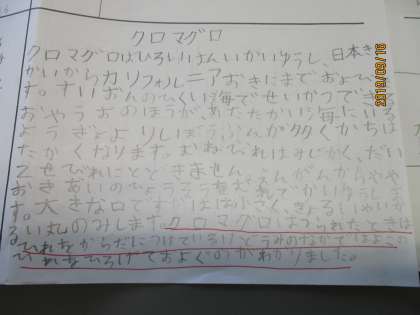 クロマグロ
クロマグロはひろいはんいかいゆうし、日本き
かいからカリフォルニアおきにまでおよび
す。すいおんのひくい海でせいかつでき
おやうおのほうが、あたたかい海にいる
ようぎょよりしぼうぶんが多くかちは
たかくなります。むねびれはみじかく、だい
2せびれにとどきません。えんがんからやや
おきあいのひょうそうをむれでかいゆうしま
す。大きな口ですがはは小さく、ぎょるいやいか
るいをのみします。クロマグロはつられたときは
ひれをからだにつけているけどうみのなかではよこの
ひれをひろげておよぐのがわかりました。
2010/09/16